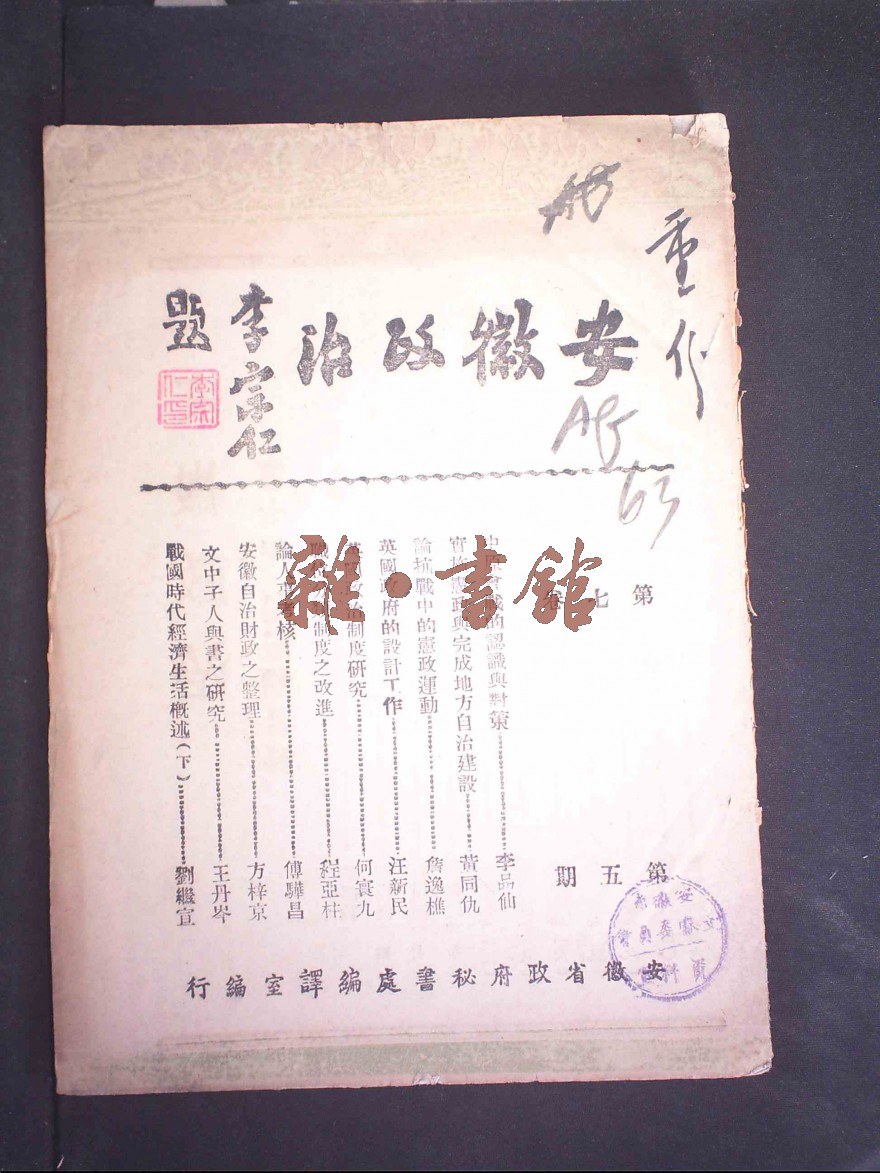 安徽政治
李宗仁
題
李宗仁印
重份
63
第七卷
第五期
的認識與對策 李品仙
實施憲政與完成地方自治建設 黃同仇
論抗戰中的憲政運動 詹逸樵
英國政府的設計工作 汪新民
政治制度研究 何寰九
制度之改進 程亞柱
論人事考核 傅驊昌
安徽自治財政之整理 方梓京
文中子人與書之研究 王丹岑
戰國時代經濟生活概述(下) 劉繼宣
安徽省政府秘書處編譯室編行
雜·書館